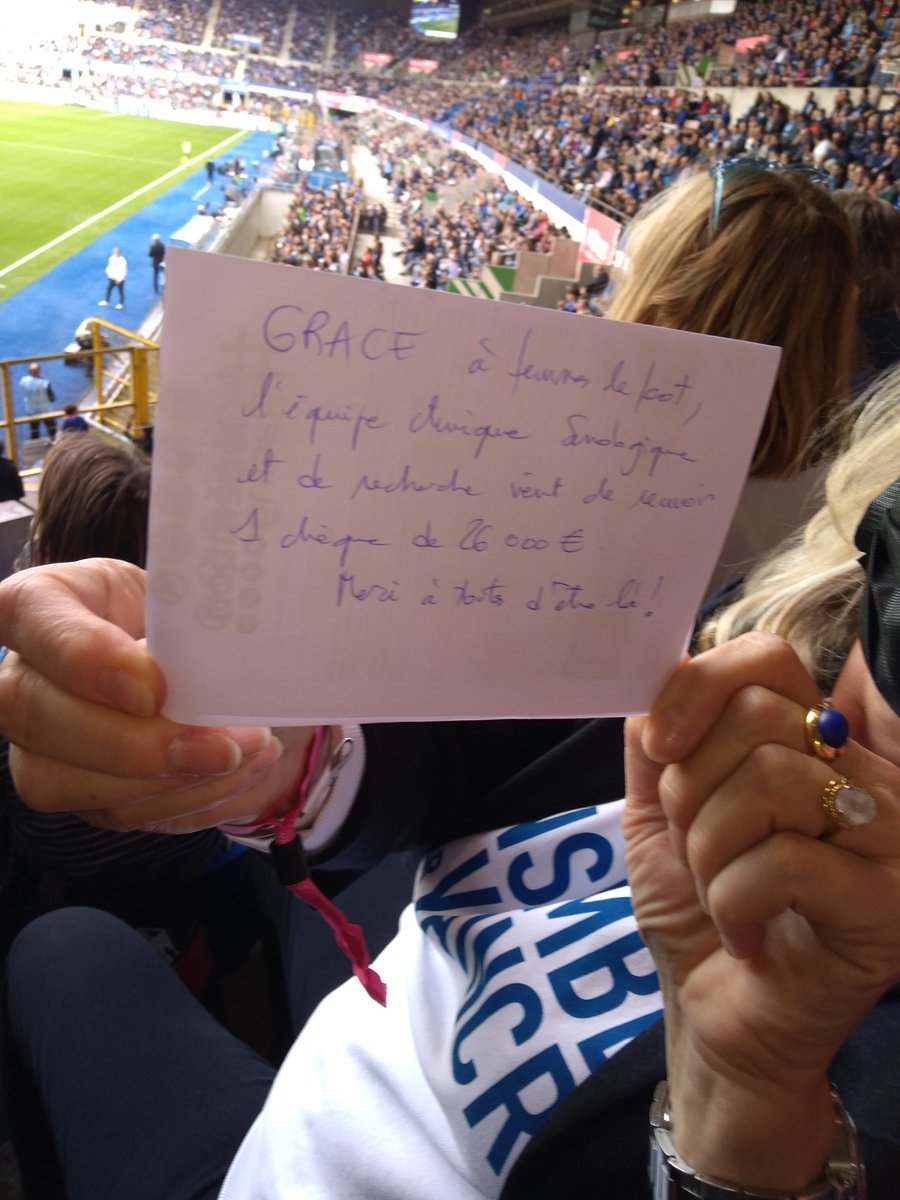 GRACE à femmes le foot,
l'équipe clinique Sénologique
et de recherche vient de recevoir
1 chèque de 26 000 €.
Merci à toutes d'être là !